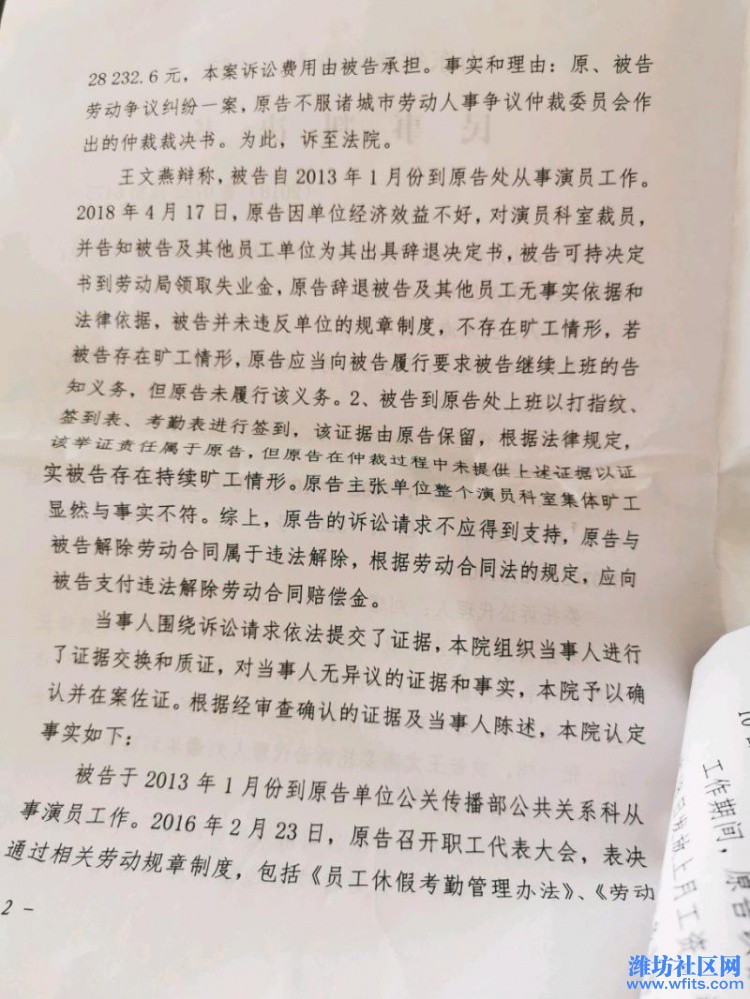 28 232.6 元，本案诉讼费用由被告承担。事实和理由：原、被告
劳动争议纠纷一案，原告不服诸城市劳动人事争议仲裁委员会作
出的仲裁裁决书。为此，诉至法院。
王文燕辩称，被告自 2013 年 1 月份到原告处从事演员工作。
2018 年 4 月 17 日，原告因单位经济效益不好，对演员科室裁员，
并告知被告及其他员工单位为其出具辞退决定书，被告可持决定
书到劳动局领取失业金，原告辞退被告及其他员工无事实依据和
法律依据，被告并未违反单位的规章制度，不存在旷工情形，若
被告存在旷工情形，原告应当向被告履行要求被告继续上班的告
知义务，但原告未履行该义务。2、被告到原告处上班以打指纹、
签到表、考勤表进行签到，该证据由原告保留，根据法律规定，
该举证责任属于原告，但原告在仲裁过程中未提供上述证据以证
实被告存在持续旷工情形。原告主张单位整个演员科室集体旷工
显然与事实不符。综上，原告的诉讼请求不应得到支持，原告与
被告解除劳动合同属于违法解除，根据劳动合同法的规定，应向
被告支付违法解除劳动合同赔偿金。
当事人围绕诉讼请求依法提交了证据，本院组织当事人进行
了证据交换和质证，对当事人无异议的证据和事实，本院予以确
认并在案佐证。根据经审查确认的证据及当事人陈述，本院认定
事实如下：
被告于 2013 年 1 月份到原告单位公关传播部公共关系科从
事演员工作。2016 年 2 月 23 日，原告召开职工代表大会，表决
通过相关劳动规章制度，包括《员工休假考勤管理办法》、《劳动
2 -
工作期间，原告
上月工资
潍坊社区网
www.wfits.com